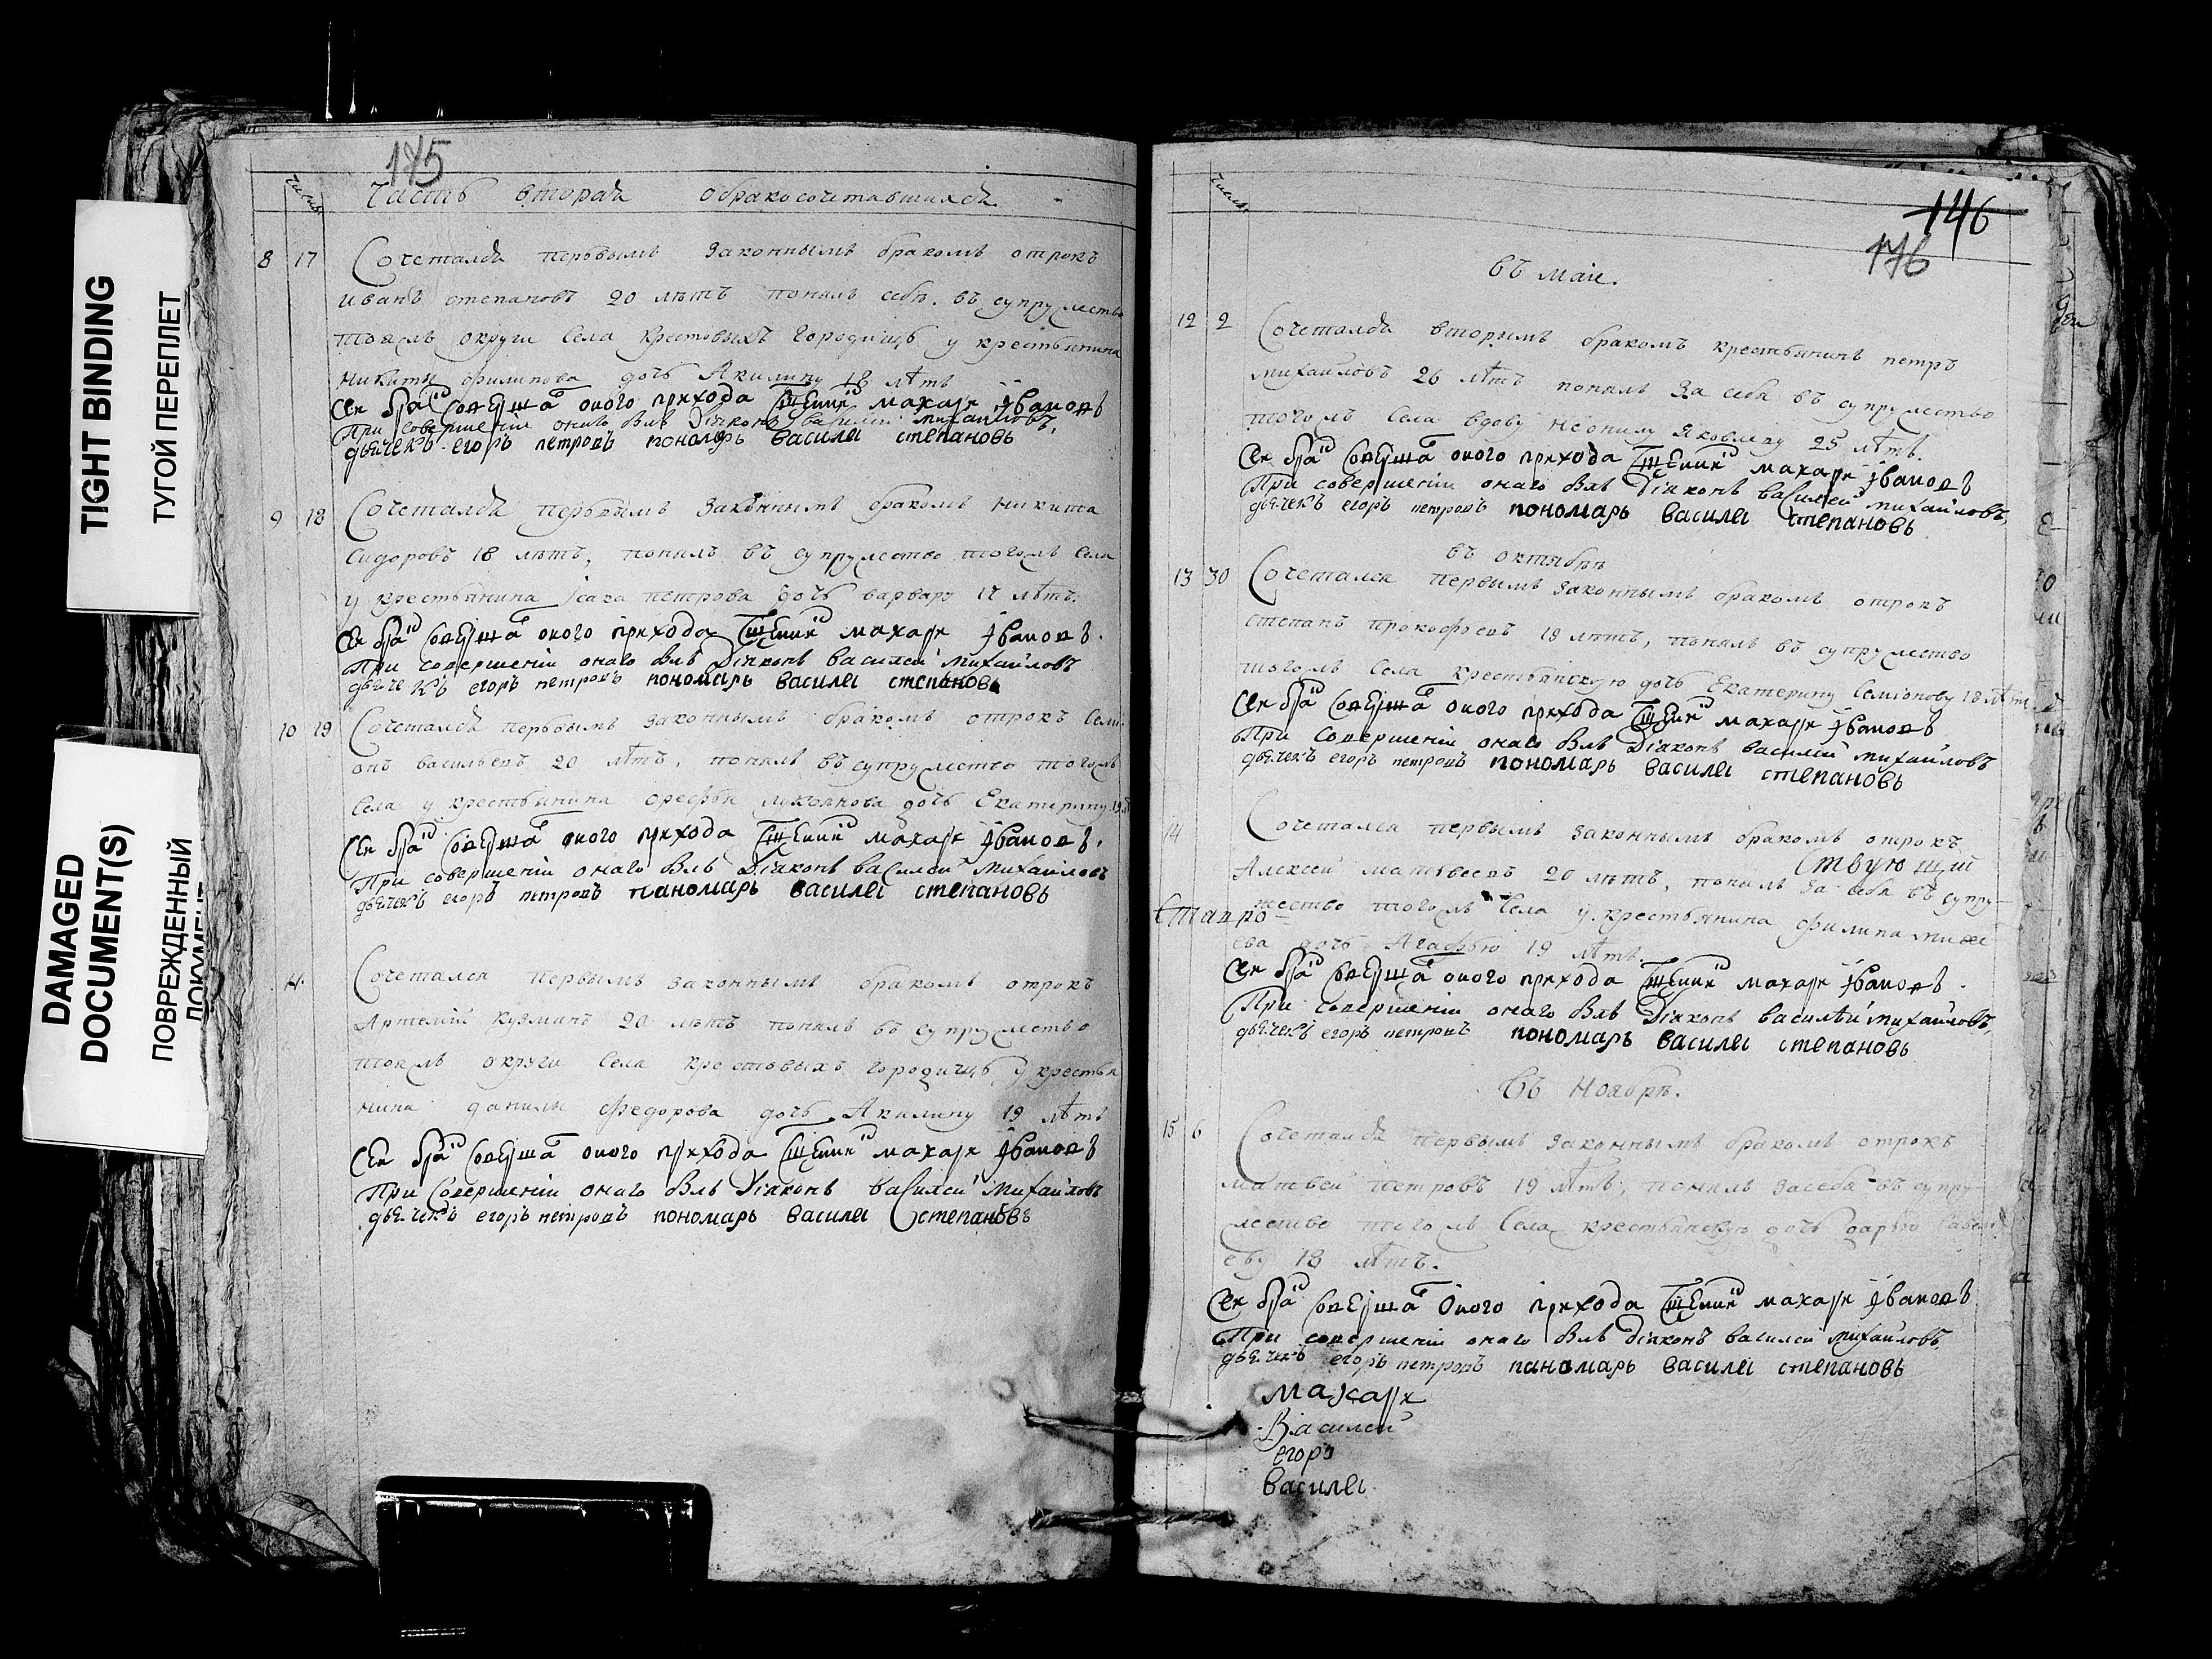 TIGHT BINDING
ТУГОЙ ПЕРЕПЛЕТ
DAMAGED
DOCUMENT(S)
ПОВРЕЖДЕННЫЙ
ДОКУМЕНТ
175
числа
Часть вторая обракосочетавшихся
8 17 Сочетался первымъ законнымъ бракомъ отрокъ
иванъ степановъ 20 лѣтъ понялъ себѣ въ супружество
тояжъ округи села крестовыхъ городищъ у крестьянина
никиты филипова дочь Акилину 18 лѣтъ
Сей бракъ совершалъ оного прихода священникъ макарей Iвановъ
При совершеніи онаго былъ Діяконъ василей михаиловъ,
дьячекъ егоръ петровъ пономарь василеи степановъ
9 18 Сочетался первымъ законнымъ бракомъ никита
Сидоровъ 18 лѣтъ, понялъ въ супружество тогожъ села
у крестьянина Iсака петрова дочь варвару 17 лѣтъ.
Сей бракъ совершалъ оного прихода священникъ макарей Iвановъ.
При совершеніи онаго былъ Діяконъ василей михаиловъ
дьячекъ егоръ петровъ пономарь василеи степановъ
10 19 Сочетался первымъ законнымъ бракомъ отрокъ Семи
онъ васильевъ 20 лѣтъ, понялъ въ супружество тогожъ
Села у крестьянина орефья лукоянова дочь Екатерину 19
Сей бракъ совершалъ оного прихода священникъ макарей Iвановъ.
При совершеніи онаго былъ Діяконъ василей михаиловъ
дьячекъ егоръ петровъ паномарь василеи степановъ
11. Сочетался первымъ законнымъ бракомъ отрокъ
Артемій кузминъ 20 лѣтъ понялъ въ супружество
тояжъ округи села крестовыхъ городищъ у крестья
нина данилы федорова дочь Акилину 19 лѣтъ
Сей бракъ совершалъ оного прихода священникъ макарей Iвановъ
При совершеніи онаго былъ Діяконъ василей михаиловъ
дьячекъ егоръ петровъ пономарь василеи степановъ
числа
146
176
въ маіи.
12 2 Сочетался вторымъ бракомъ крестьянинъ петръ
михаиловъ 26 лѣтъ понялъ за себя въ супружество
тогожъ села вдову неонилу Яковлеву 25 лѣтъ.
Сей бракъ совершалъ оного прихода священникъ макарей Iвановъ
При совершеніи онаго былъ Діяконъ василей михаиловъ,
дьячекъ егоръ петровъ пономарь василеи степановъ
въ октябрѣ
13 30 Сочетался первымъ законнымъ бракомъ отрокъ
степанъ прокофьевъ 19 лѣтъ, понялъ въ супружество
тогожъ села крестьянскую дочь Екатерину Семіонову 18 лѣтъ
Сей бракъ совершалъ оного прихода священникъ макарей Iвановъ
При совершеніи онаго былъ Діяконъ василей михаиловъ
дьячекъ егоръ петровъ пономарь василеи степановъ
14 Сочетался первымъ законнымъ бракомъ отрокъ
ствующій
Алексей матвеевъ 20 лѣтъ, понялъ за себя въ супру
жество тогожъ села у крестьянина филипа михе
ставро
ева дочь Агафью 19 лѣтъ.
Сей бракъ совершалъ оного прихода священникъ макарей Iвановъ.
При совершеніи онаго былъ Діяконъ василѣй михаиловъ,
дьячекъ егоръ петровъ пономарь василеи степановъ
Въ Ноябрѣ.
15 6 Сочетался первымъ законнымъ бракомъ отрокъ
матвеи петровъ 19 лѣтъ, понялъ засебя въ супру
жество тогожъ села крестьянскую дочь дарью савель
еву 18 лѣтъ.
Сей бракъ совершалъ оного прихода священникъ макарей Iвановъ
При совершеніи онаго былъ діяконъ василей михаиловъ,
дьячекъ егоръ петровъ паномарь василеи степановъ
макарей
Василей
егоръ
василеи